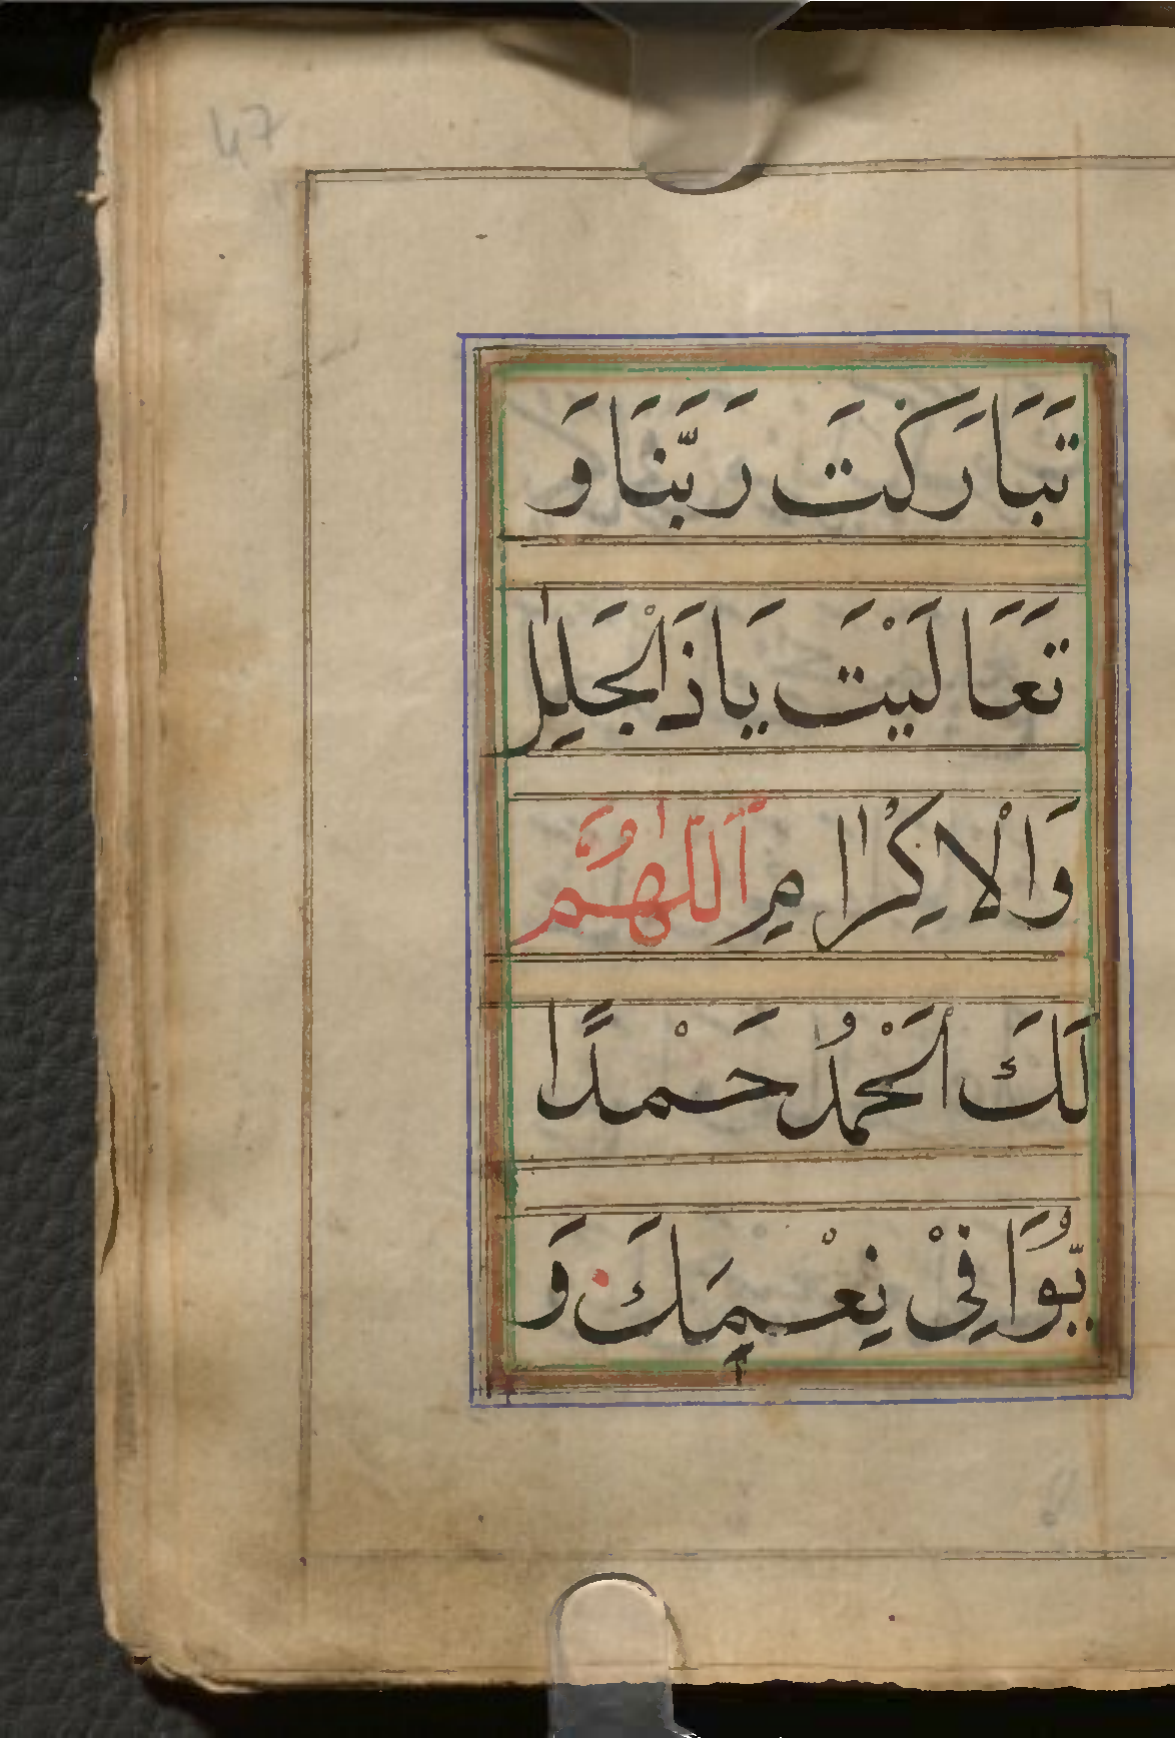 47
تَبَارَكْتَ رَبَّنَا وَ
تَعَالَيْتَ يَاذَالْجَلٰلِ
وَالْاِكْرَامِ اَللّٰهُمَّ
لَكَ الْحَمْدُ حَمْدًا
يُّوَافِيْ نِعْمَكَ وَ